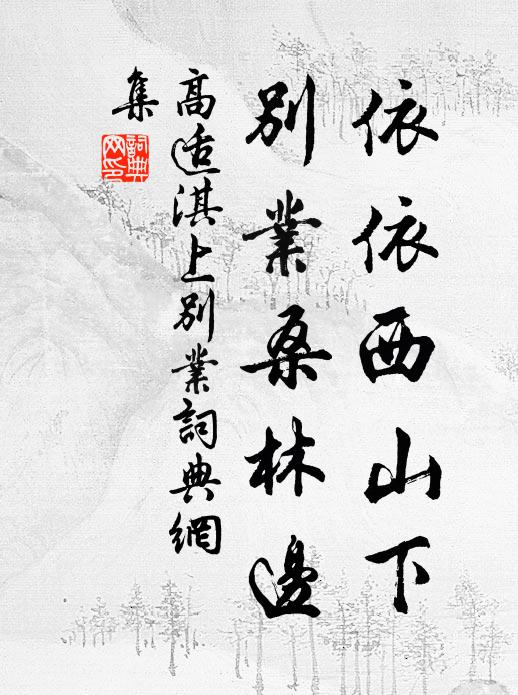 依依西山下
別業桑林邊
高适淇上別業詞典網
集
詞典
网印